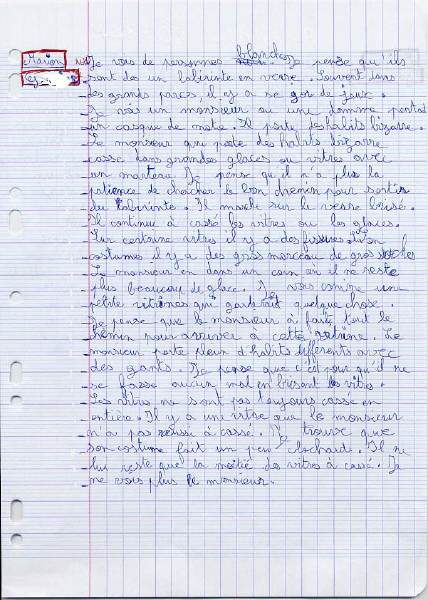 Marion
Je vois de personnes blondes Je pense qu'ils
sont des un labirinte en verse. Souvent dans
les grands parcs, il y a se genre de jeux.
Je vois un monsieur ou une femme
un casque de moto. Il porte des habits bizarre.
Le monsieur qui porte des habits bizarre
casse dans grandes glaces ou vitres avec
un marteau. Je pense qu'il n'a plus la
patience de chercher le bon chemin pour sortir
du labirinte. Il marche sur le verre brisé.
Il continue à cassé les vitres ou les glaces.
Sur certaine vitres il y a des fissures
costumes il y a des gros morceau de gros
Le monsieur en dans un coin en il ne reste
plus beaucoup de glace. Je vois comme une
petite vitrines qui quelque chose.
Je pense que le monsieur à faite tout le
chemin pour arriver à cette vitrine. Le
monsieur porte plein d'habits différents avec
des gants. Je pense que c'est pour qu'il ne
se fasse aucun mal en brisant les vitres.
Les vitre ne sont pas toujours casse en
entière. Il y a une vitre que le monsieur
n'a pas reussi à cassé. Je trouve que
son costume fait un peu clochard. Il ne
lui reste que la moitié des vitres à cassé. Je
ne vois plus le monsieur.